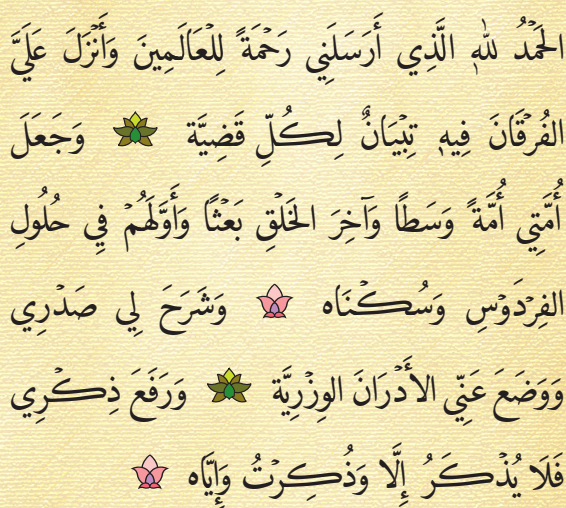 الحَمْدُ للهِ الَّذِي أَرَسَلَنِي رَحْمَةً لِلْعَالَمِينَ وَأَنْزَلَ عَلَيَّ
الفُرْقَانَ فِيهِ تِبْيَانٌ لِكُلِّ قَضِيَّة وَجَعَلَ
أُمَّتِي أُمَّةً وَسَطًا وَآخِرَ الخَلْقِ بَعْثًا وَأَوَّلَهُمْ فِي حُلُولِ
الفِرْدَوْسِ وَسُكْنَاه وَشَرَحَ لِي صَدْرِي
وَوَضَعَ عَنِّي الأَدْرَانَ الوِزْرِيَّة وَرَفَعَ ذِكْرِي
فَلَا يُذْكَرُ إِلَّا وَذُكِرْتُ وَإِيَّاه